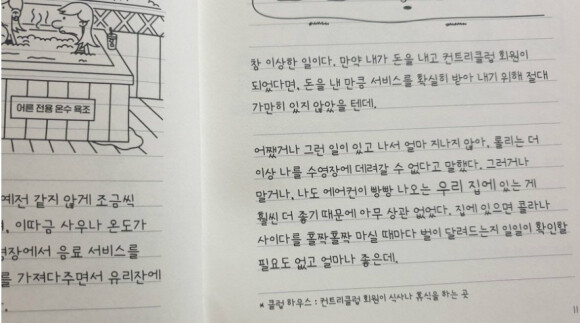 어른 전용 온수 욕조
예전 같지 않게 조금씩
이따금 사우나 온도가
장에서 음료 서비스를
를 가져다주면서 유리잔에
참 이상한 일이다. 만약 내가 돈을 내고 컨트리클럽 회원이
되었다면, 돈을 낸 만큼 서비스를 확실히 받아 내기 위해 절대
가만히 있지 않았을 텐데.
어쨌거나 그런 일이 있고 나서 얼마 지나지 않아, 롤리는 더
이상 나를 수영장에 데려갈 수 없다고 말했다. 그러거나
말거나, 나도 에어컨이 빵빵 나오는 우리 집에 있는 게
훨씬 더 좋기 때문에 아무 상관 없었다. 집에 있으면 콜라나
사이다를 홀짝홀짝 마실 때마다 벌이 달려드는지 일일이 확인할
필요도 없고 얼마나 좋은데.
* 클럽 하우스 : 컨트리클럽 회원이 식사나 휴식을 하는 곳
11